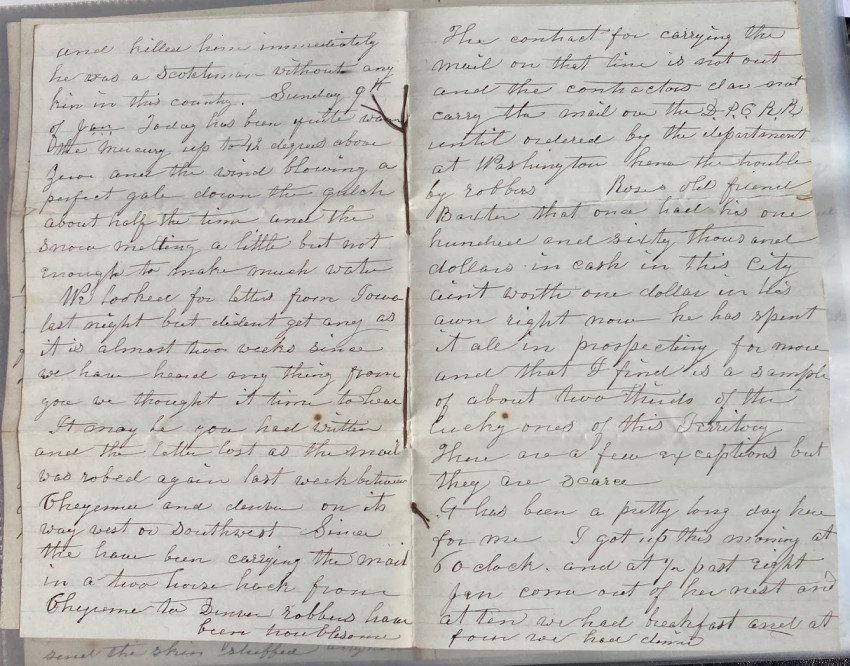 and killed him immediately
he was a Scotchman without any
kin in this country. Sunday 9th
of Jan Today has been quite warm
the mercury up to 42 degrees above
Zero and the wind blowing a
perfect gale down the gulch
about half the time and the
snow melting a little but not
enough to make much water
We looked for letters from Iowa
last night but dident get any as
it is almost two weeks since
we have heard any thing from
you we thought it time to hear
It may be you had written
and the letter lost as the mail
was robed again last week between
Cheyenne and denver on its
way west or Southwest Since
the have been carrying the mail
in a two horse hack from
Cheyenne to Denver robbers have
been troublesome
The contract for carrying the
mail on that line is not out
and the contractors dare not
carry the mail over the D.P.C R.R
until ordered by the department
at Washington hence the trouble
by robbers Roses old friend
Baxter that once had his one
hundred and sixty thousand
dollars in cash in this City
aint worth one dollar in his
own right now he has spent
it all in prospecting for more
and that I find is a sample
of about two thirds of the
lucky ones of this Territory
There are a few exceptions but
they are scarce
It has been a pretty long day here
for me I got up this morning at
6 oclock. and at ½ past eight
Jan come out of her nest and
at ten we had breakfast and at
four we had dinn
send the skin stuffed any